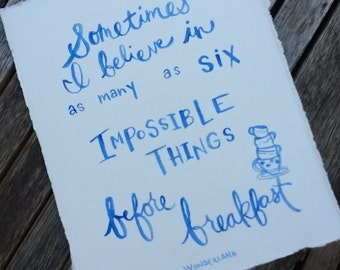 Sometimes
I believe in
as many as SIX
IMPOSSIBLE
THINGS
before breakfast
WONDERLAND